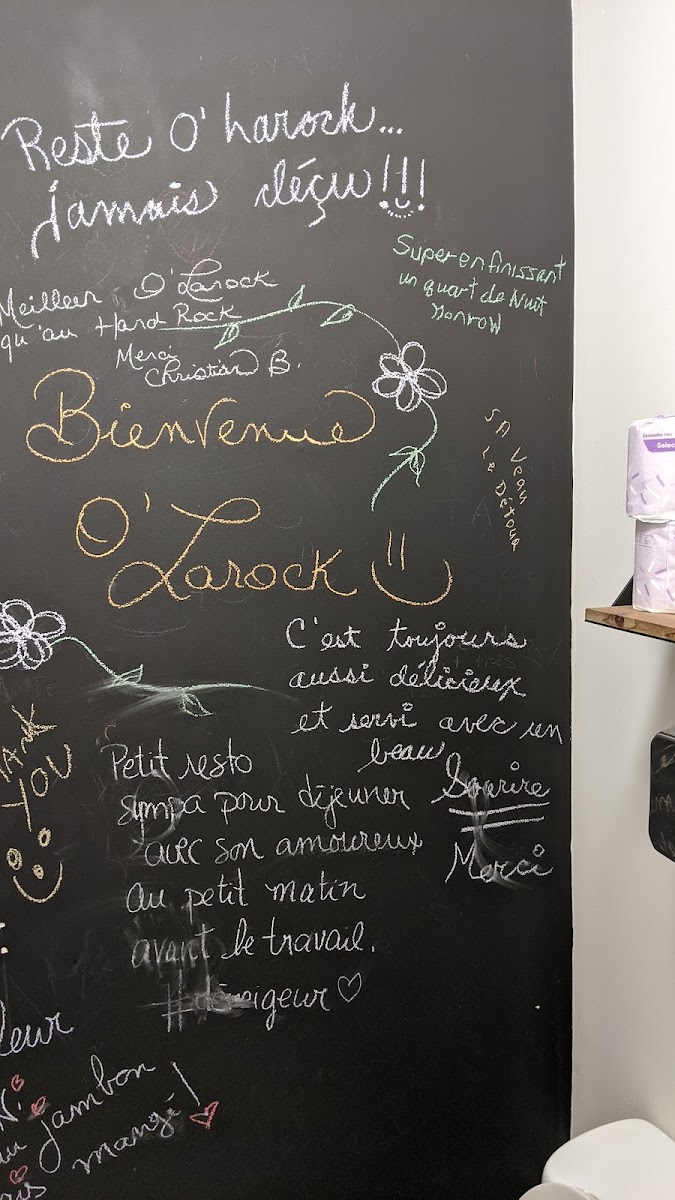 Reste O'Larock...
jamais déçu!!!
Super en finissant
un quart de Nuit
Monrow
Meilleur O'Larock
qu'au Hard Rock
Merci
Christian B.
Bienvenue
O'Larock
SA VEAU
Le Détour
C'est toujours
aussi délicieux
et servi avec un
beau
Sourire
Merci
THANK
YOU
Petit resto
sympa pour déjeuner
avec son amoureux
au petit matin
avant le travail.
jambon
mangé!
Selec